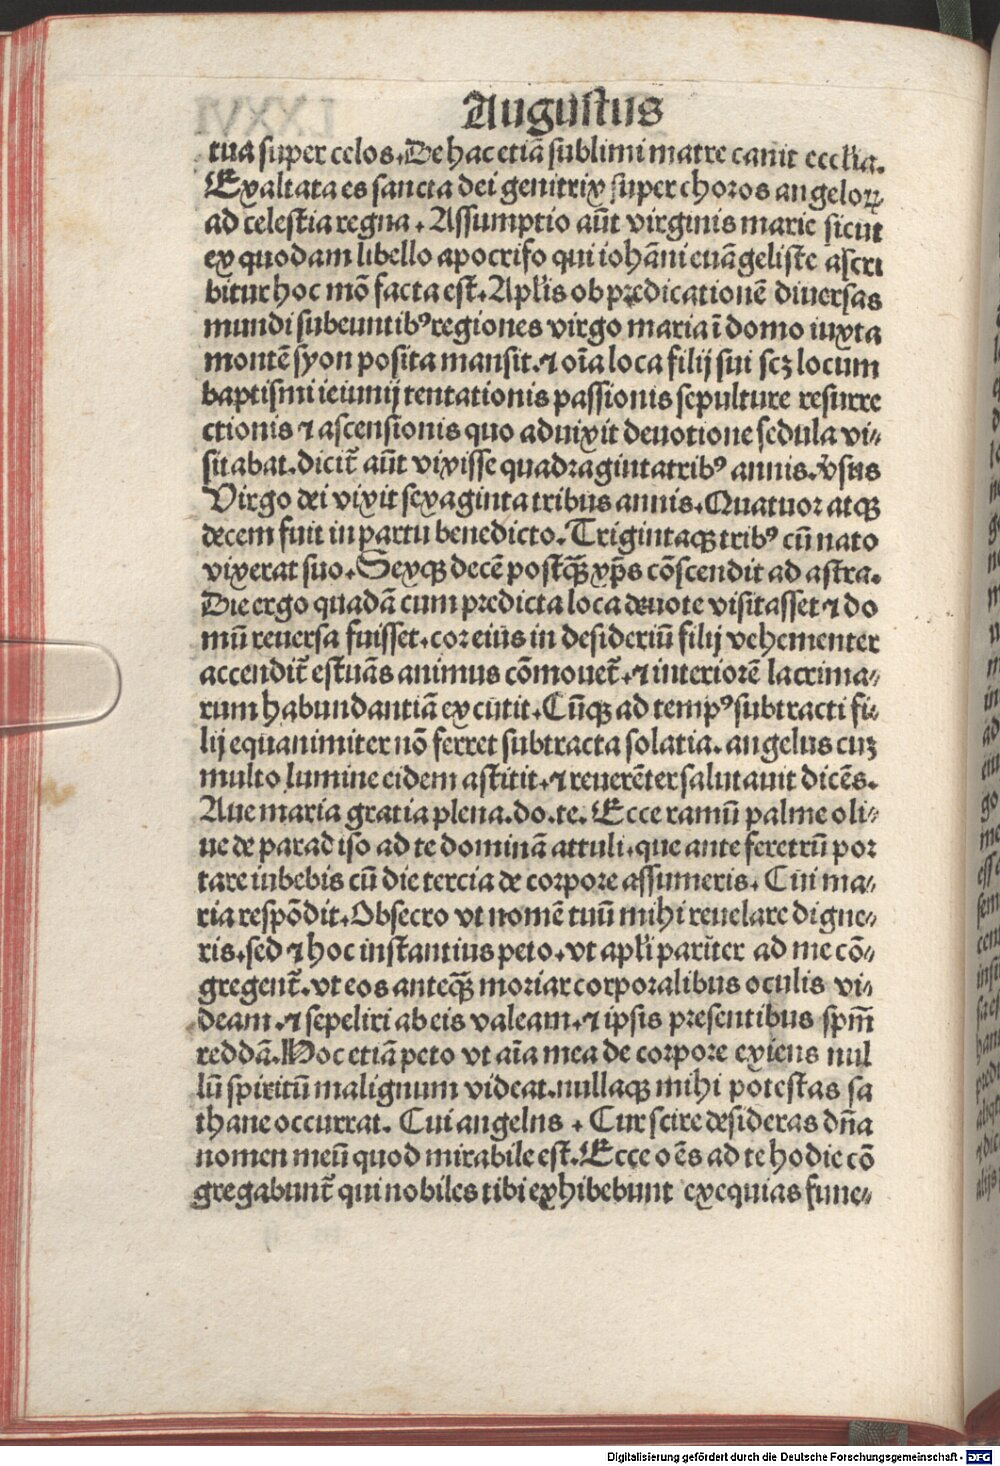 Augustus
tua super celos. De hac etiã sublimi matre canit ecclia.
Exaltata es sancta dei genitrix super choros angeloꝝ
ad celestia regna. Assumptio aũt virginis marie sicut
ex quodam libello apocrifo qui iohãni euãgeliste ascri
bitur hoc mõ facta est. Aplis ob predicationẽ diuersas
mundi subeuntibꝰ regiones virgo maria ĩ domo iuxta
montẽ syon posita mansit. ⁊ oĩa loca filij sui scꝫ locum
baptismi ieiunij tentationis passionis sepulture resurre
ctionis ⁊ ascensionis quo aduixit deuotione sedula vi⸗
sitabat. dicit̃ aũt vixisse quadraginta tribꝰ annis. v̓sus
Virgo dei vixit sexaginta tribus annis. Quatuor atqꝫ
decem fuit in partu benedicto. Trigintaqꝫ tribꝰ cũ nato
vixerat suo. Sexqꝫ decẽ postꝙ̃ xp̃s cõscendit ad astra.
Die ergo quadã cum predicta loca deuote visitasset ⁊ do
mũ reuersa fuisset. cor eius in desideriũ filij vehementer
accendit̃ estuãs animus cõmouet̃. ⁊ interiorẽ lacrima⸗
rum habundantiã excutit. Cũqꝫ ad tempꝰ subtracti fi⸗
lij equanimiter nõ ferret subtracta solatia. angelus cuꝫ
multo lumine eidem astitit. ⁊ reuerẽter salutauit dicẽs.
Aue maria gratia plena. do. te. Ecce ramũ palme oli⸗
ue de paradiso ad te dominã attuli. que ante feretrũ por
tare iubebis cũ die tercia de corpore assumeris. Cui ma⸗
ria respõdit. Obsecro vt nomẽ tuũ mihi reuelare digne⸗
ris. sed ⁊ hoc instantius peto. vt apli parit̃er ad me cõ⸗
gregent̃. vt eos anteꝙ̃ moriar corporalibus oculis vi⸗
deam. ⁊ sepeliri ab eis valeam. ⁊ ipsis presentibus spm̃
reddã. Hoc etiã peto vt aĩa mea de corpore exiens nul
lũ spiritũ malignum videat. nullaqꝫ mihi potestas sa
thane occurrat. Cui angelns. Cur scire desideras dña
nomen meũ quod mirabile est. Ecce oẽs ad te hodie cõ
gregabunt̃ qui nobiles tibi exhibebunt exequias fune⸗
Digitalisierung gefördert durch die Deutsche Forschungsgemeinschaft - DFG